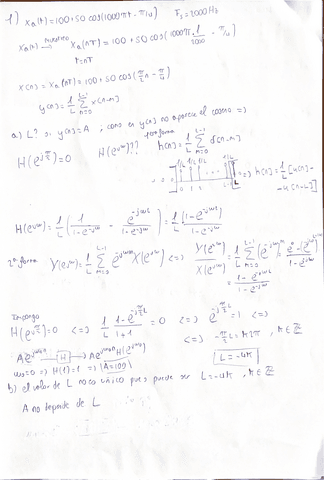 1) xa(t) = 100 + 50 cos(1000πt - π/4)   Fs = 2000 Hz
xa(t) → muestreo → xa(nT) = 100 + 50 cos(1000π · 1/2000 - π/4)
t=nT
x(n) = xa(nT) = 100 + 50 cos(π/2 n - π/4)
y(n) = 1/L Σ_{m=0}^{L-1} x[n-m]
a) L? si y(n) = A ; como en y(n) no aparece el coseno =>
H(e^{jπ/2}) = 0   H(e^{jω})??   1ª forma   h(n) = 1/L Σ_{m=0}^{L-1} δ[n-m]
=> h(n) = 1/L [u(n) -
- u(n-L)]
H(e^{jω}) = 1/L (1/(1-e^{-jω}) - e^{-jωL}/(1-e^{-jω})) = 1/L (1-e^{-jωL})/(1-e^{-jω})
2ª forma   Y(e^{jω}) = 1/L Σ_{m=0}^{L-1} e^{-jωm} X(e^{jω}) <=> Y(e^{jω})/X(e^{jω}) = 1/L Σ_{m=0}^{L-1} (e^{-jω})^m
= 1/L (1-e^{-jωL})/(1-e^{-jω})
H(e^{jπ/2}) = 0 <=> 1/L (1-e^{-jπ/2 L})/(1+1) = 0 <=> e^{-jπ/2 L} = 1 <=>
<=> -π/2 L = k2π , k∈Z
Ae^{jω0n} → H → Ae^{jω0n} H(e^{jω0})
L = -4k , k∈Z
ω0 = 0 => H(1) = 1 => A = 100
b) el valor de L no es único pues puede ser L = -4k , k∈Z
A no depende de L